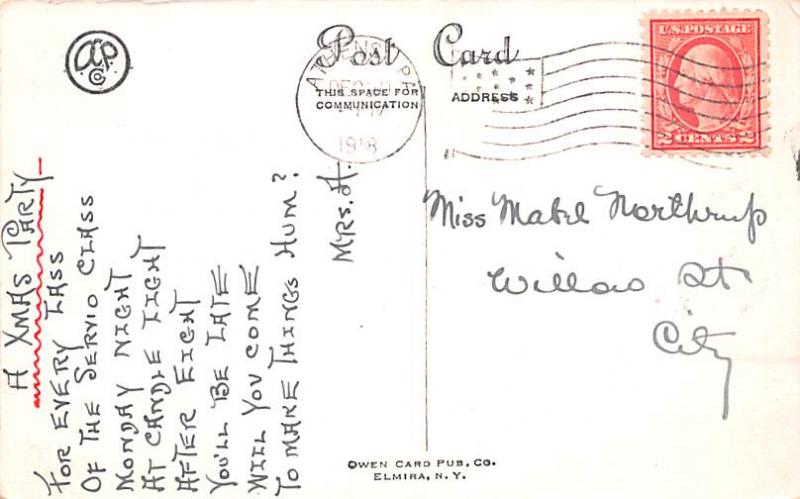 aPC
Post Card
THIS SPACE FOR
COMMUNICATION
ADDRESS
ATHENS, PA.
DEC
1918
U.S. POSTAGE
2 CENTS 2
A XMAS PARTY
FOR EVERY LASS
OF THE SERVIO CLASS
MONDAY NIGHT
AT CANDLE LIGHT
AFTER EIGHT
YOU'LL BE LATE
WILL YOU COME
TO MAKE THINGS HUM?
MRS. H.
Miss Mabel Northrup
Willow St.
City
OWEN CARD PUB. CO.
ELMIRA, N. Y.